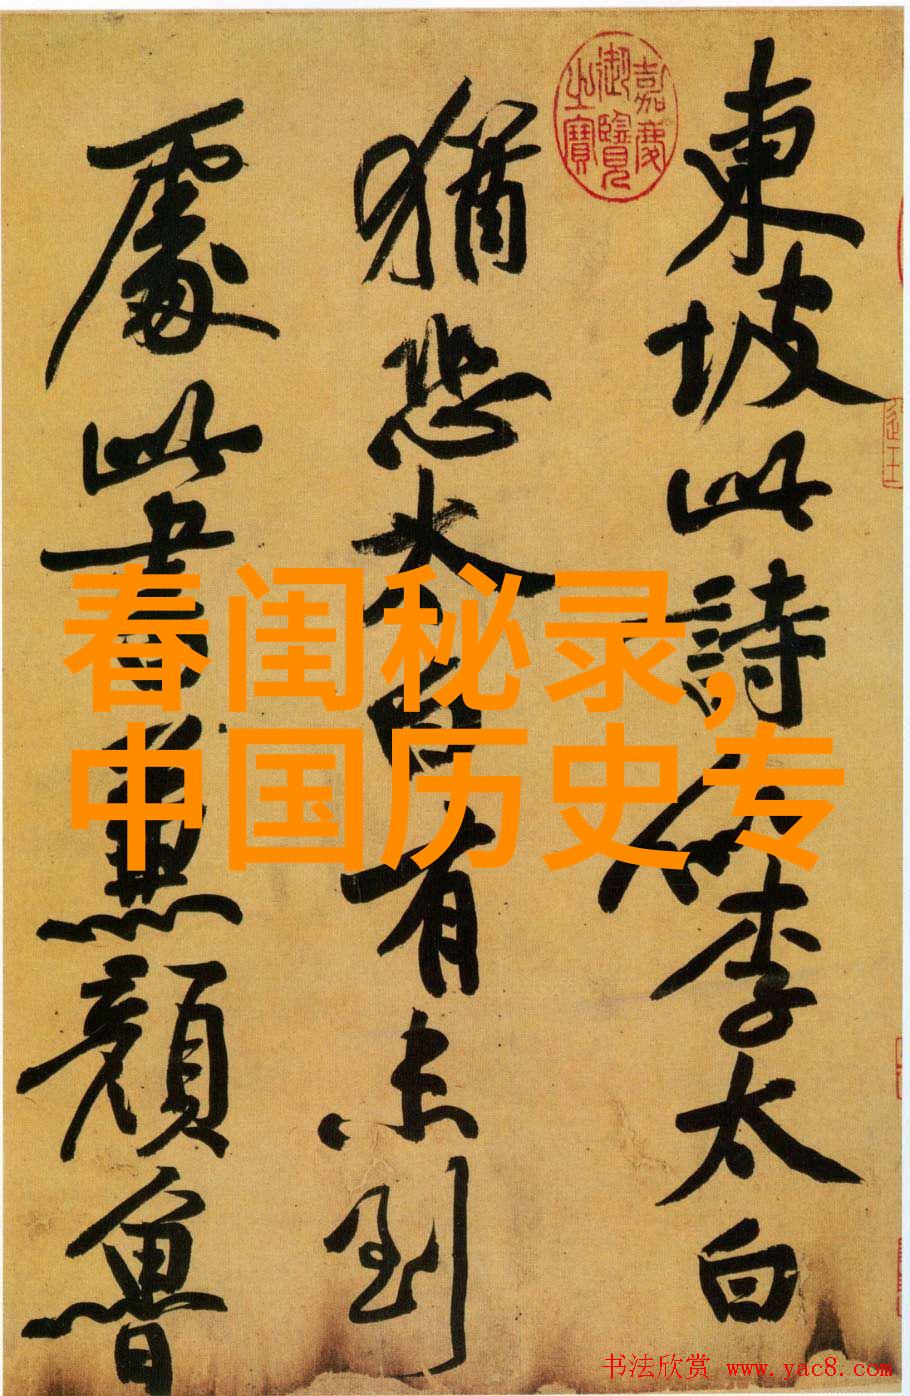 東坡此詩似李太白
猶恐太白有未到
處此書兼顏魯
嘉慶御覽之寶
春闺秘录,
中国历史专
书法欣赏 www.yac8.com